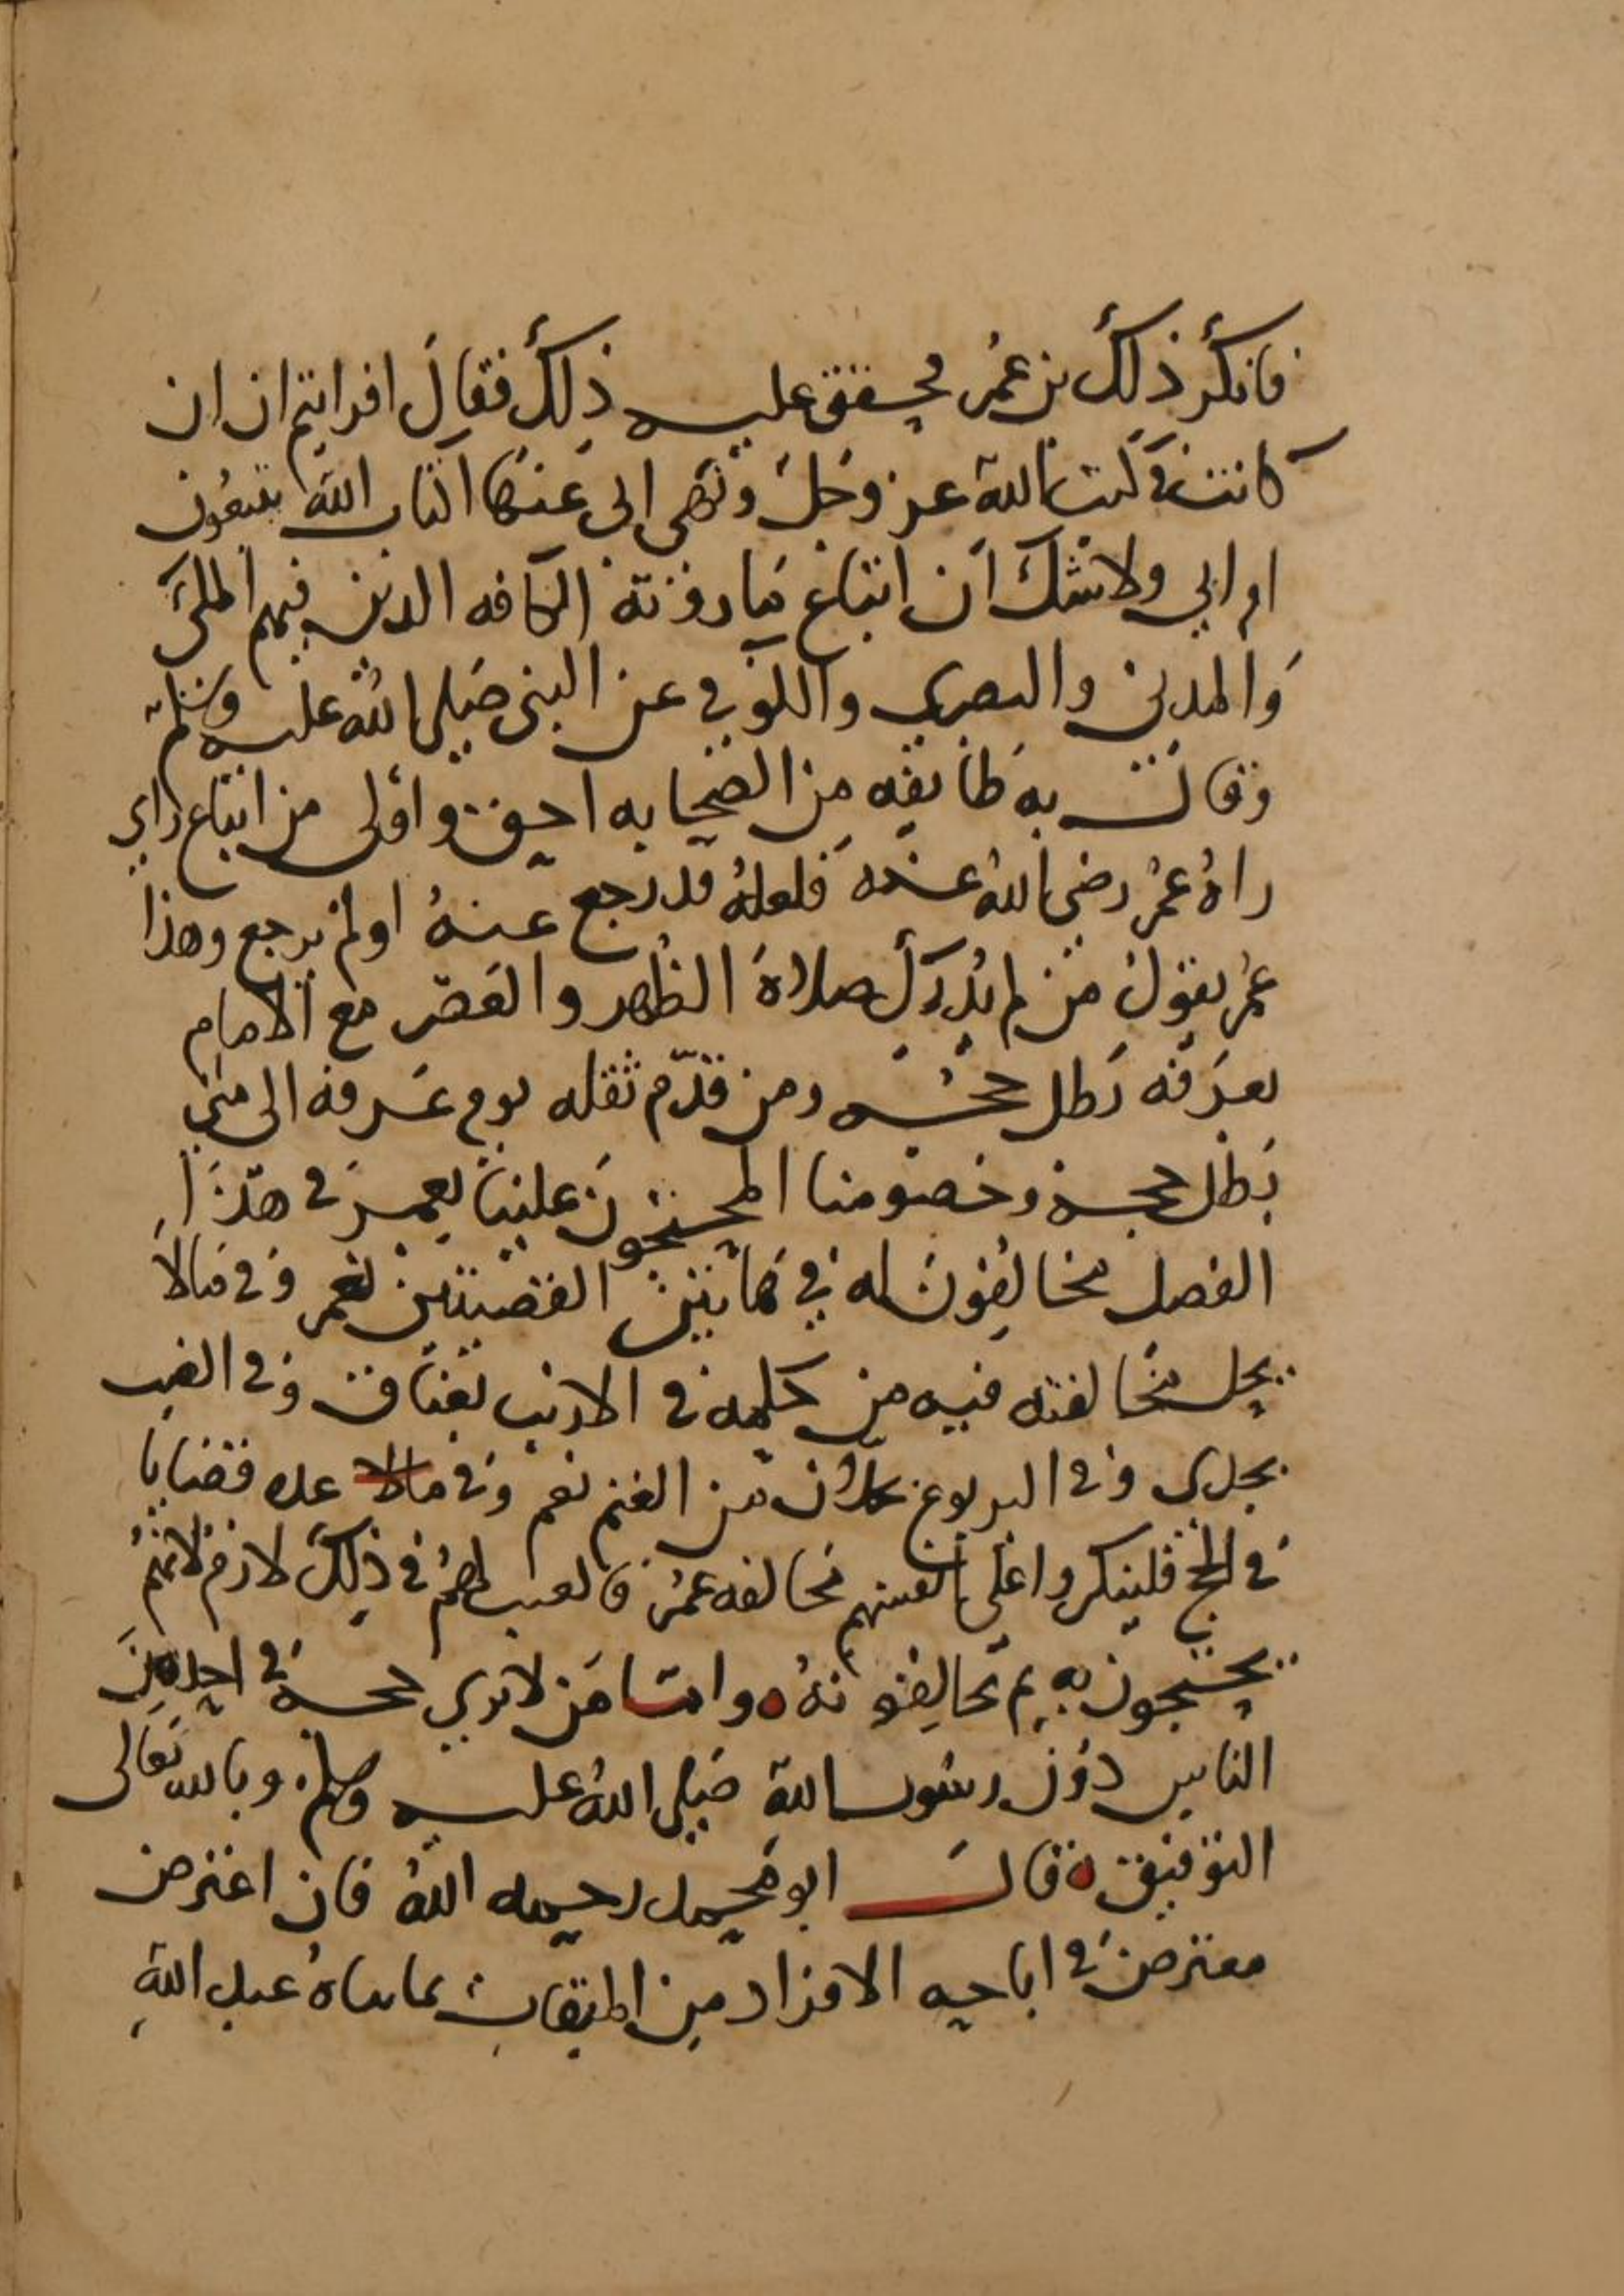 فانكر ذلك بن عمر محقق عليه ذلك فقال افرايتم ان ان
كانت في كتاب الله عز وجل ونهى ابى عنها اكتاب الله تتبعون
ام ابي ولا شك ان اتباع ما روته الكافه الذين فيهم المكي
والمدني والبصري والكوفي عن النبي صلى الله عليه وسلم
وقالت به طايفه من الصحابه احق واولى من اتباع راي
راه عمر رضي الله عنه فلعله قد رجع عنه او لم يرجع وهذا
عمر يقول من لم يدرك صلاة الظهر والعصر مع الامام
بعرفه بطل حجه ومن قدم ثقله يوم عرفه الى منى
بطل حجه وخصومنا المحتجون علينا بعمر في هذا
الفصل مخالفون له في هاتين القضيتين نعم وفي مالا
يحل مخالفته فيه من حكمه في الارنب بعناق وفي الضب
بجدي وفي اليربوع من الغنم نعم وفي مالا عده قضايا
في الحج فلينكروا على انفسهم مخالفه عمر فالعيب لهم في ذلك لازم لانهم
يحتجون به ثم يخالفونه واما من لا يري حجه في احد من
الناس دون رسول الله صلى الله عليه وسلم وبالله تعالى
التوفيق قال ابو محمد رحمه الله فان اعترض
معترض في اباحه الافراد من الميقات بما عبد الله